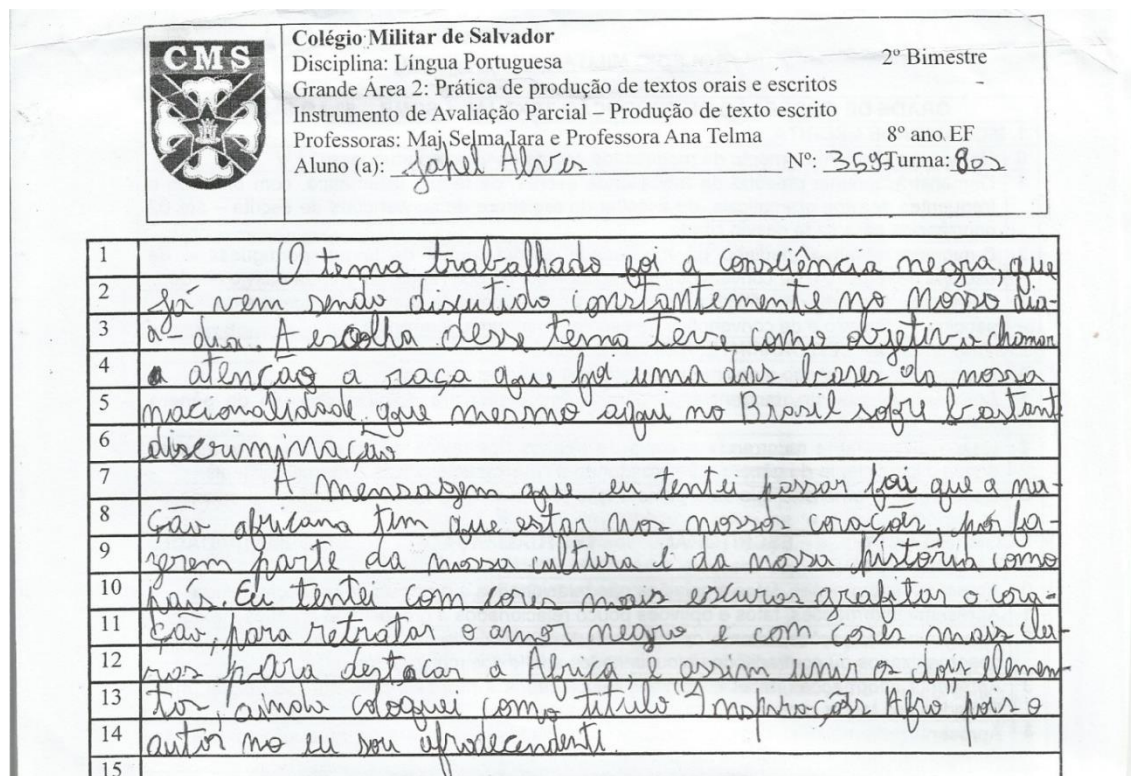 CMS
Colégio Militar de Salvador
Disciplina: Língua Portuguesa 2º Bimestre
Grande Área 2: Prática de produção de textos orais e escritos
Instrumento de Avaliação Parcial – Produção de texto escrito
Professoras: Maj Selma Iara e Professora Ana Telma 8º ano EF
Aluno (a): Alves Nº: 3595 Turma: 802
1 O tema trabalhado foi a consciência negra, que
2 já vem sendo discutido constantemente no nosso dia-
3 a-dia. A escolha desse tema teve como objetivo chamar
4 a atenção a raça que foi uma das bases da nossa
5 nacionalidade que mesmo aqui no Brasil sofre bastante
6 discriminação
7 A mensagem que eu tentei passar foi que a na-
8 ção africana tem que estar nos nossos corações, por fa-
9 zerem parte da nossa cultura e da nossa história como
10 país. Eu tentei com cores mais escuras grafitar o cora-
11 ção, para retratar o amor negro e com cores mais cla-
12 ras para destacar a África, e assim unir os dois elemen-
13 tos, ainda coloquei como título "Inspirações Afro pois o
14 autor no eu sou afrodecendente.
15